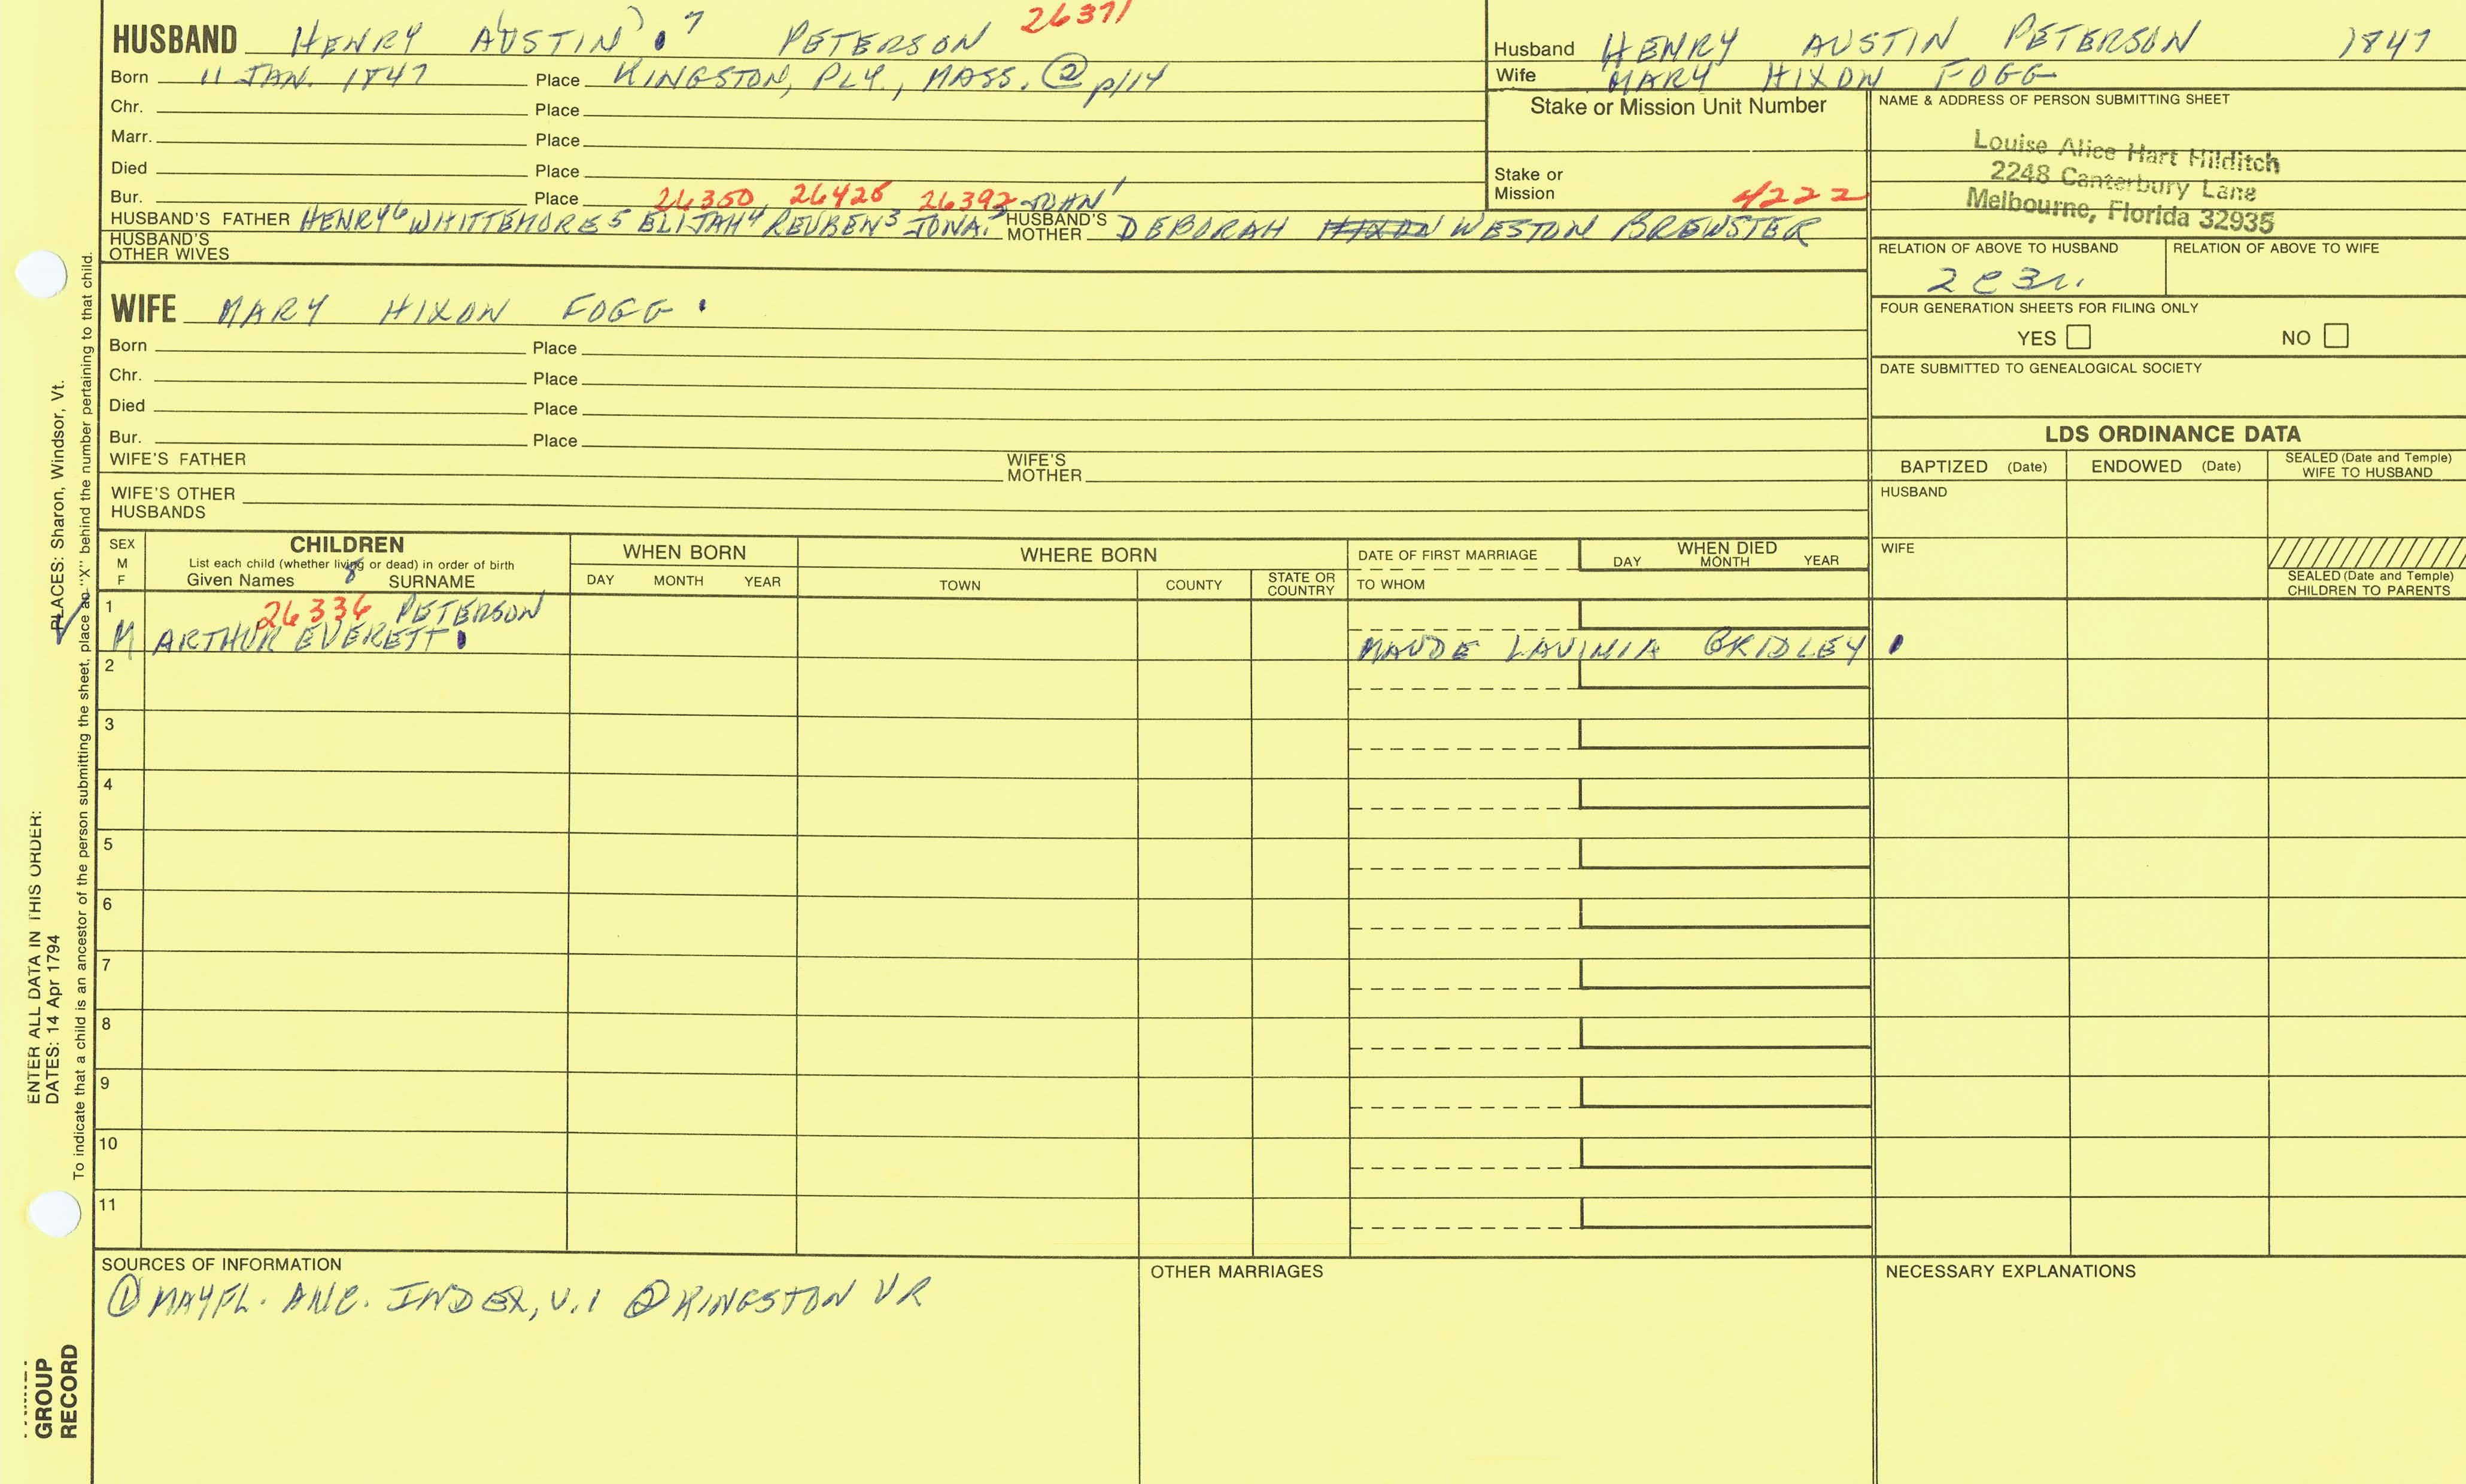 HUSBAND HENRY AUSTIN 7 PETERSON 26371
Born 11 JAN. 1847 Place KINGSTON, PLY., MASS. ② p114
Chr. Place
Marr. Place
Died Place
Bur. Place 26350, 26426 26392 JOHN 1
HUSBAND'S FATHER HENRY 6 WHITTEMORE 5 ELIJAH 4 REUBEN 3 JONA. 2 HUSBAND'S MOTHER DEBORAH HIXON WESTON BREWSTER
HUSBAND'S OTHER WIVES
Husband HENRY AUSTIN PETERSON 1847
Wife MARY HIXON FOGG
Stake or Mission Unit Number
Stake or Mission 4222
NAME & ADDRESS OF PERSON SUBMITTING SHEET
Louise Alice Hart Hilditch
2248 Canterbury Lane
Melbourne, Florida 32935
RELATION OF ABOVE TO HUSBAND RELATION OF ABOVE TO WIFE
2C3r.
FOUR GENERATION SHEETS FOR FILING ONLY
YES NO
DATE SUBMITTED TO GENEALOGICAL SOCIETY
WIFE MARY HIXON FOGG
Born Place
Chr. Place
Died Place
Bur. Place
WIFE'S FATHER WIFE'S MOTHER
WIFE'S OTHER HUSBANDS
LDS ORDINANCE DATA
BAPTIZED (Date) ENDOWED (Date) SEALED (Date and Temple) WIFE TO HUSBAND
HUSBAND
WIFE
SEALED (Date and Temple) CHILDREN TO PARENTS
SEX M F
CHILDREN
List each child (whether living or dead) in order of birth
Given Names 8 SURNAME
WHEN BORN
DAY MONTH YEAR
WHERE BORN
TOWN COUNTY STATE OR COUNTRY
DATE OF FIRST MARRIAGE
TO WHOM
WHEN DIED
DAY MONTH YEAR
1 26336 PETERSON
M ARTHUR EVERETT MAUDE LAVINIA BRIDLEY
2
3
4
5
6
7
8
9
10
11
SOURCES OF INFORMATION
① MAYFL. ANC. INDEX, V.1 ② KINGSTON VR
OTHER MARRIAGES
NECESSARY EXPLANATIONS
ENTER ALL DATA IN THIS ORDER:
DATES: 14 Apr 1794
PLACES: Sharon, Windsor, Vt.
To indicate that a child is an ancestor of the person submitting the sheet, place an "X" behind the number pertaining to that child.
GROUP
RECORD